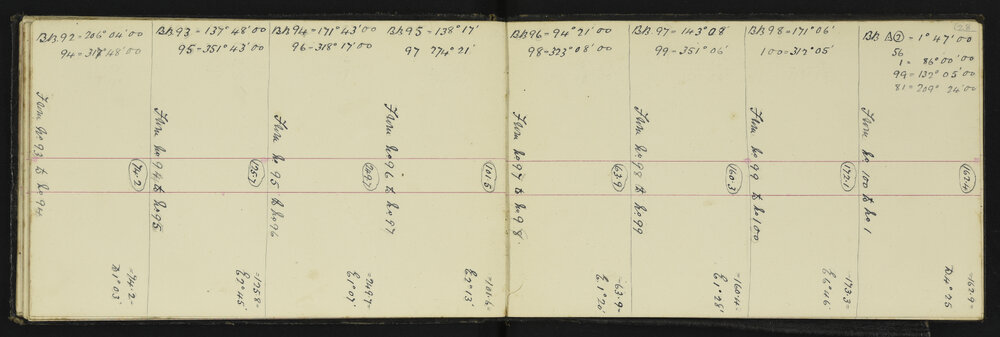 Bk.92 = 206° 04' 00
94 = 318° 48' 00
From No 93 to No 94
74·2
= 74·2 =
D 1° 03'
Bk 93 = 137° 48' 00
95 = 351° 43' 00
From No 94 to No 95
125·7
= 125·8 =
E 2° 45'
Bk 94 = 171° 43' 00
96 = 318° 17' 00
From No 95 to No 96
249·7
= 249·7 =
E 1° 07'
Bk 95 = 138° 17'
97 274° 21'
From No 96 to No 97
101·5
= 101·6 =
E 2° 13'
Bk 96 = 94° 21' 00
98 = 323° 08' 00
From No 97 to No 98
63·9
= 63·9 =
E 1° 20'
Bk. 97 = 143° 08'
99 = 351° 06'
From No 98 to No 99
160·3
= 160·4 =
E 1° 28'
Bk 98 = 171° 06'
100 = 312° 05'
From No 99 to No 100
172·1
= 173·3 =
E 6° 46'
28
Bk 2 = 1° 47' 00
56
1 = 86° 00' 00
99 = 132° 05' 00
81 = 209° 24' 00
From No 100 to No 1
162·4
= 162·9 =
D 4° 25